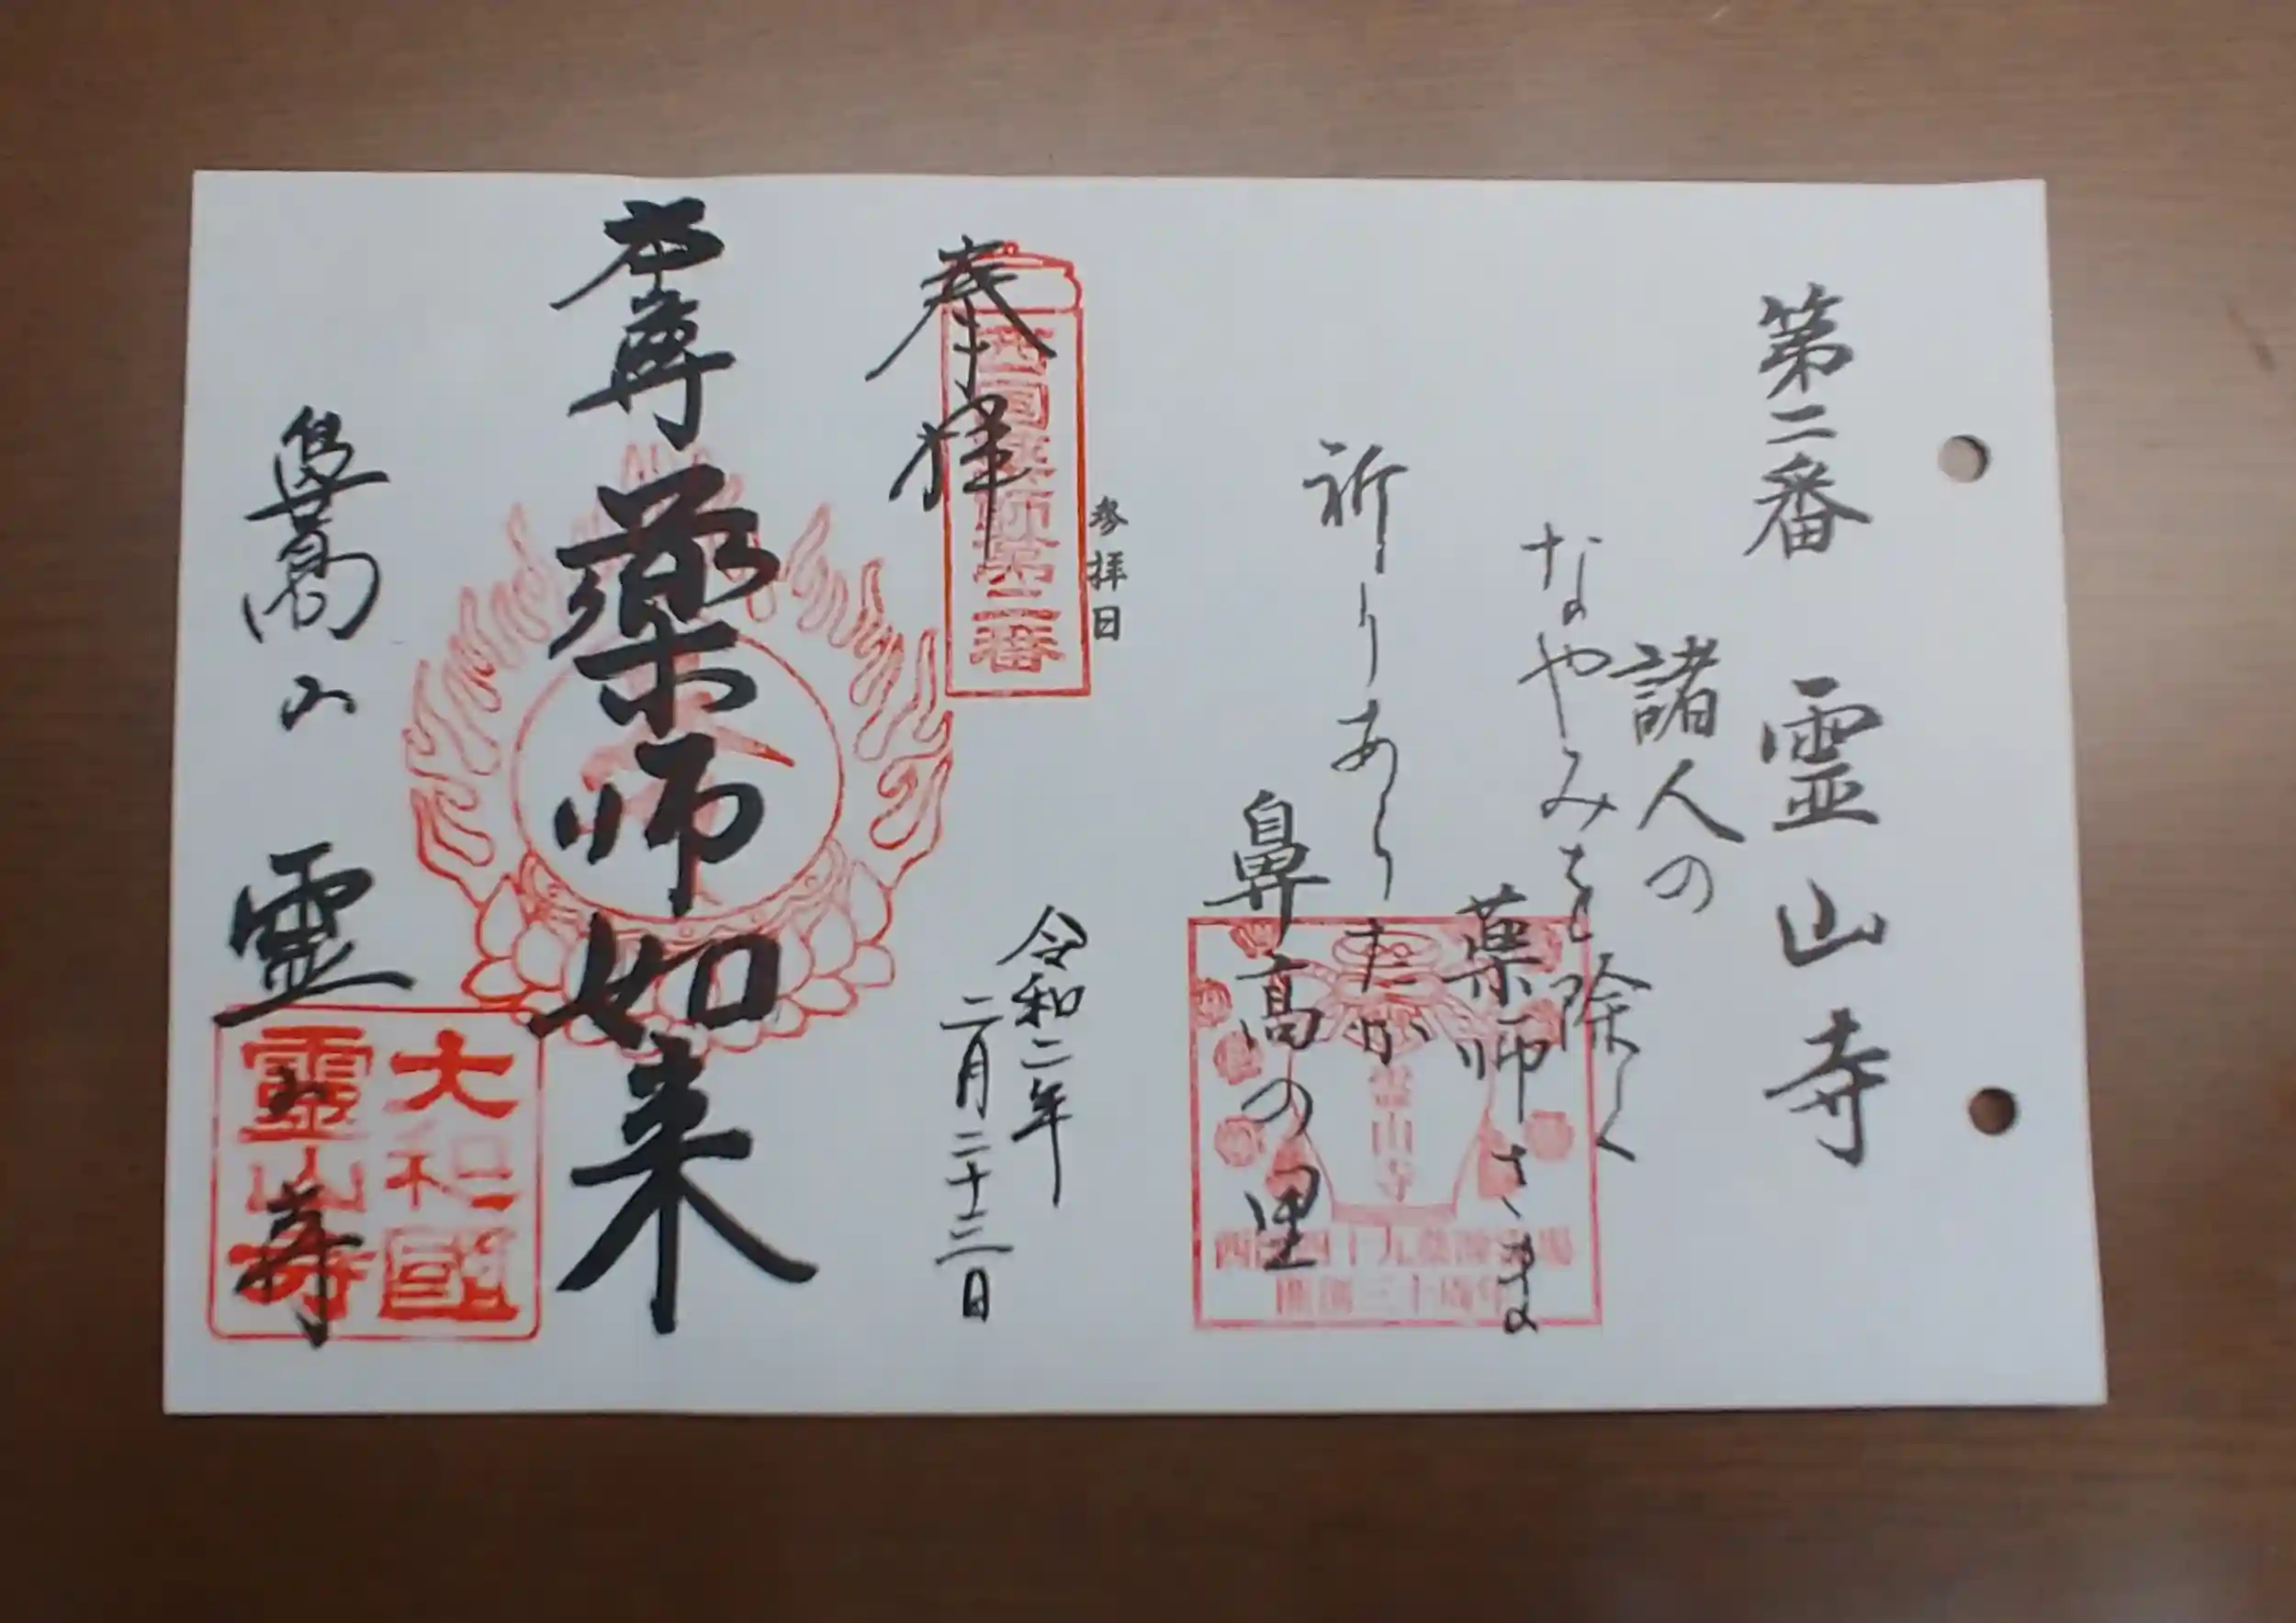 第二番 霊山寺
諸人の
なやみを除く
薬師さま
祈りあらたか
鼻高の里
霊山寺
西国四十九薬師霊場
開創三十周年
参拝日
奉拝
西国薬師第二番
令和二年
二月二十三日
本尊 薬師如来
鼻高山 霊山寺
大和國
霊山寺